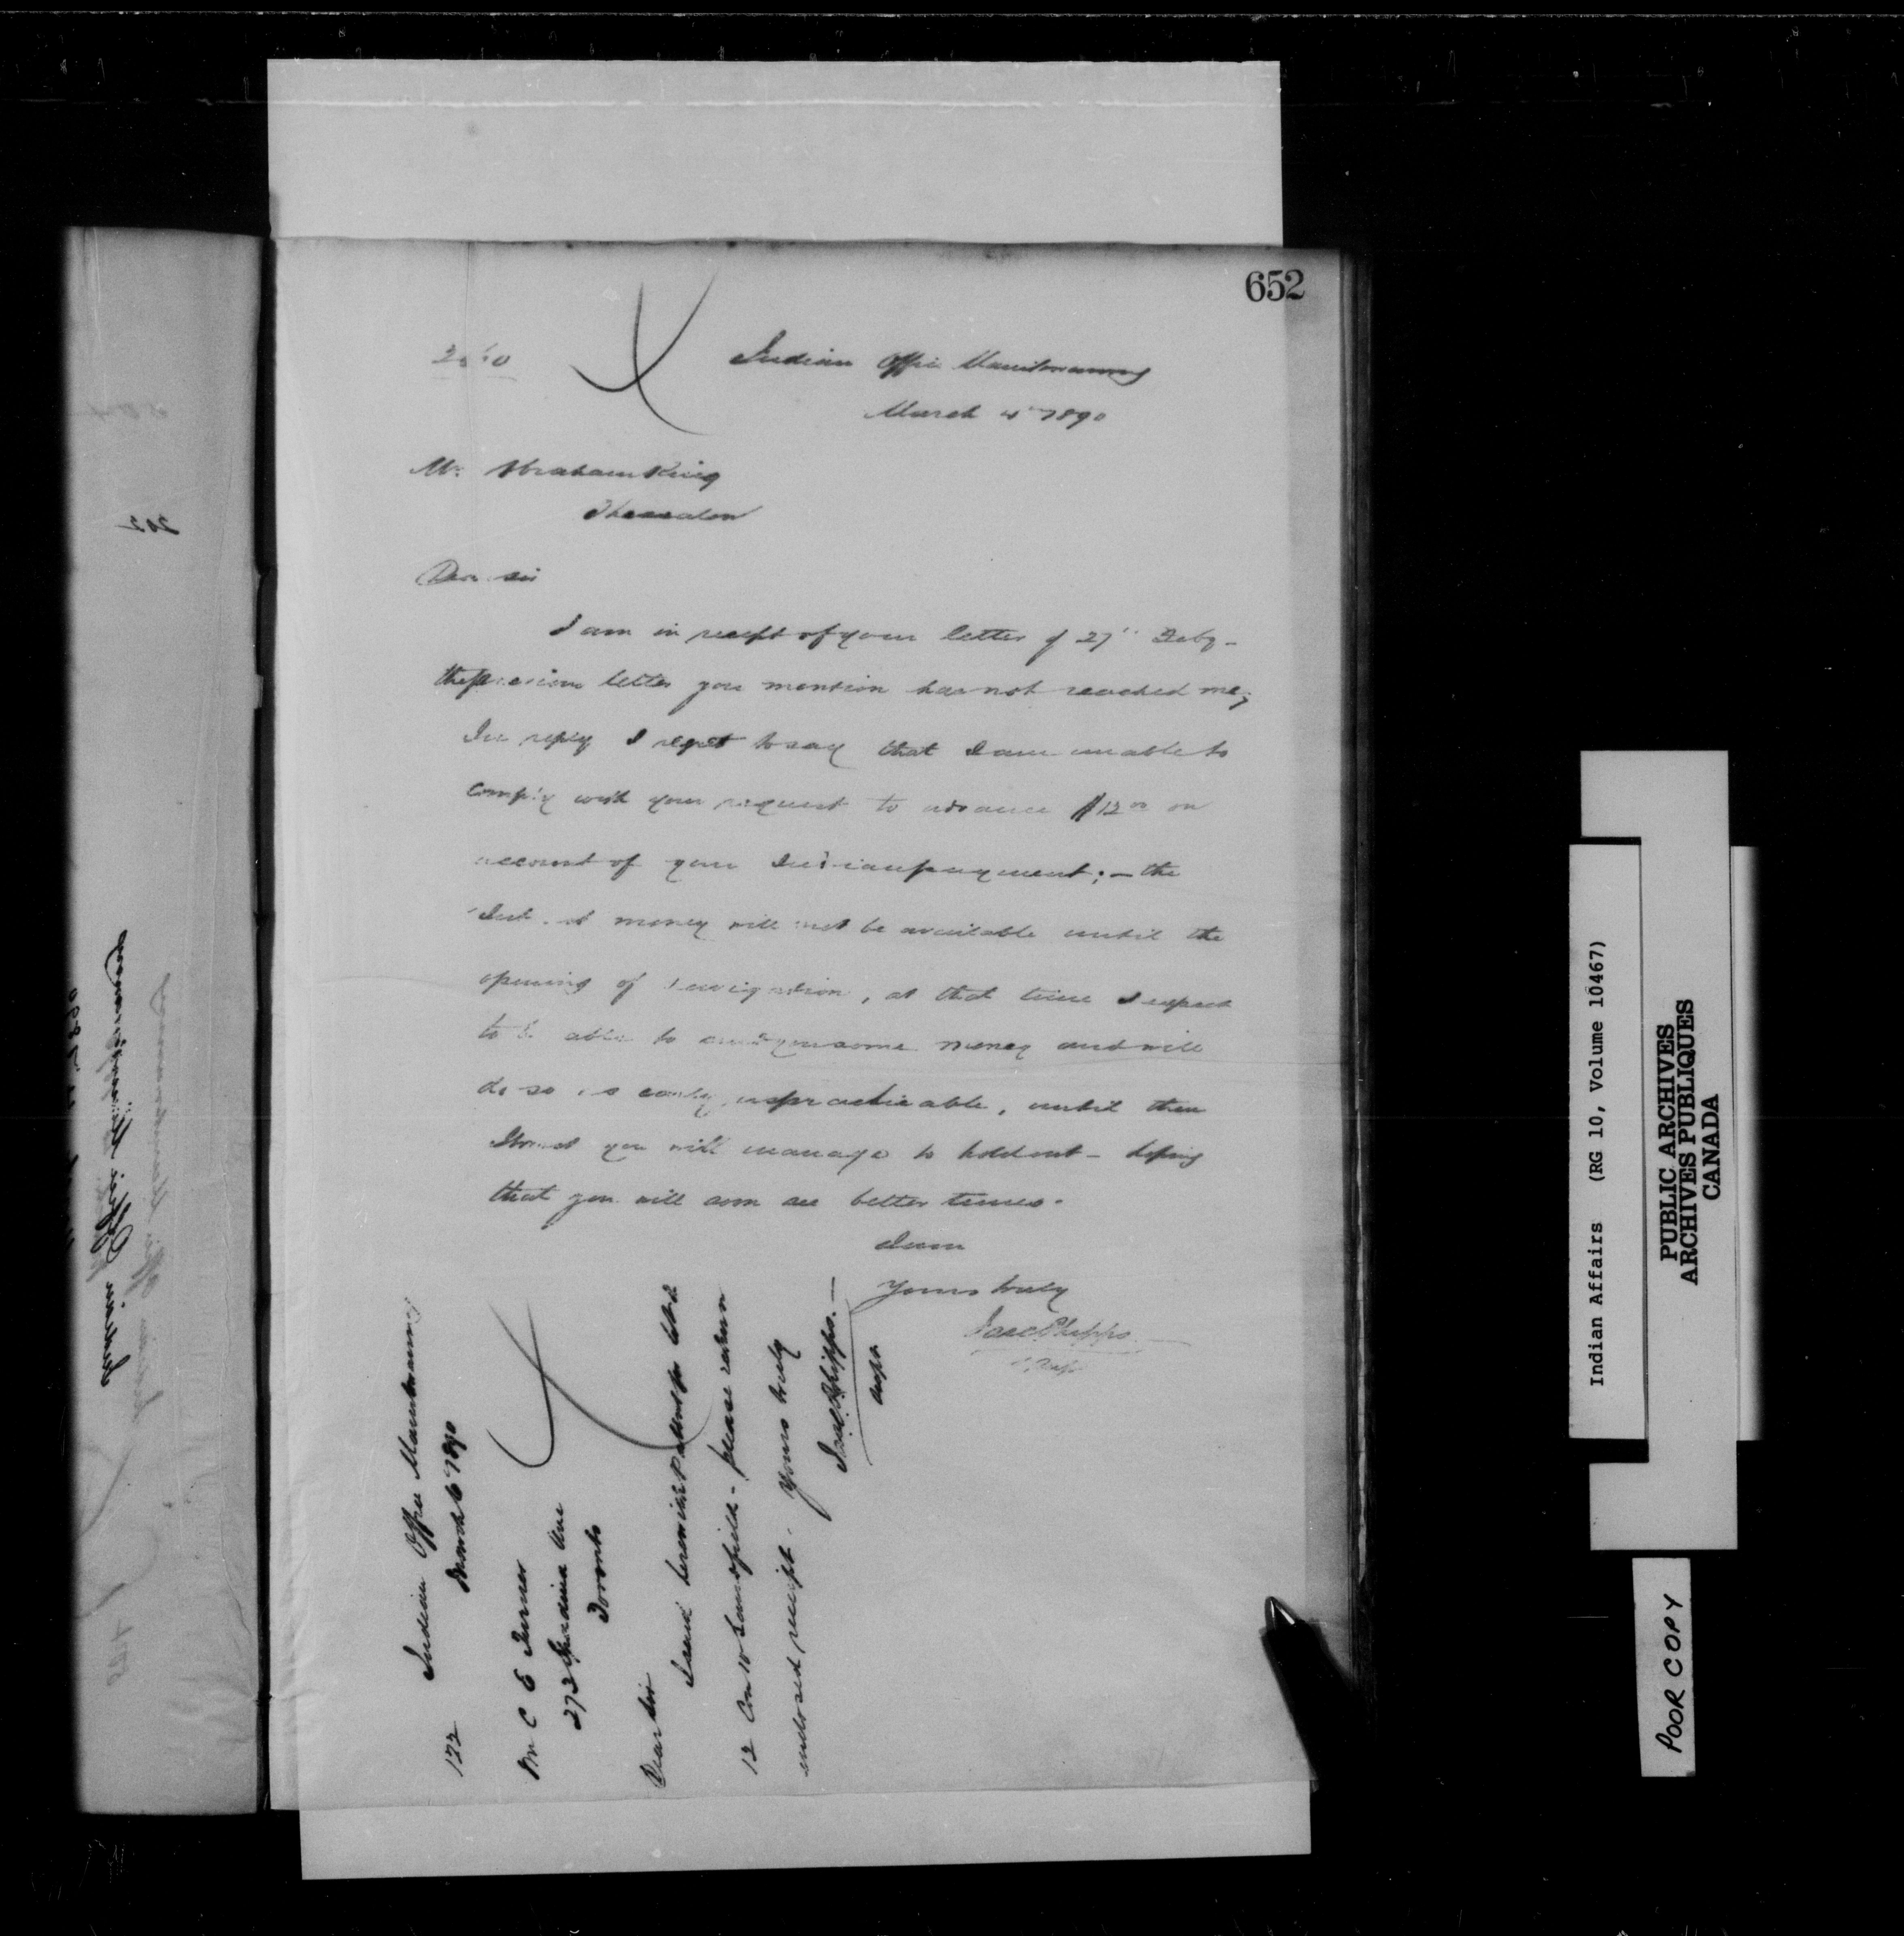 652
Indian Office Manitowaning
March 4th 1890
Mr. Abraham King
Thessalon
Dear sir
I am in receipt of your letter of 27th Feby -
the previous letter you mention has not reached me,
In reply I regret to say that I am unable to
comply with your request to advance $12 00 on
account of your Indian payment; - the
money will not be available until the
opening of navigation, at that time I expect
to be able to send you some money and will
do so as early as practicable, until then
I trust you will manage to hold out - hoping
that you will soon see better times.
I am
Yours truly
Jas C Phipps
172 Indian Office Manitowaning
March 6th 1890
Mr C E Turner
273 Spadina Ave
Toronto
Dear Sir
I send herewith Patent for Lot
12 Con 10 Sandfield - please return
enclosed receipt. Yours truly
Jas C Phipps. -
Indian Office Manitowaning
Indian Affairs (RG 10, Volume 10467)
PUBLIC ARCHIVES
ARCHIVES PUBLIQUES
CANADA
POOR COPY